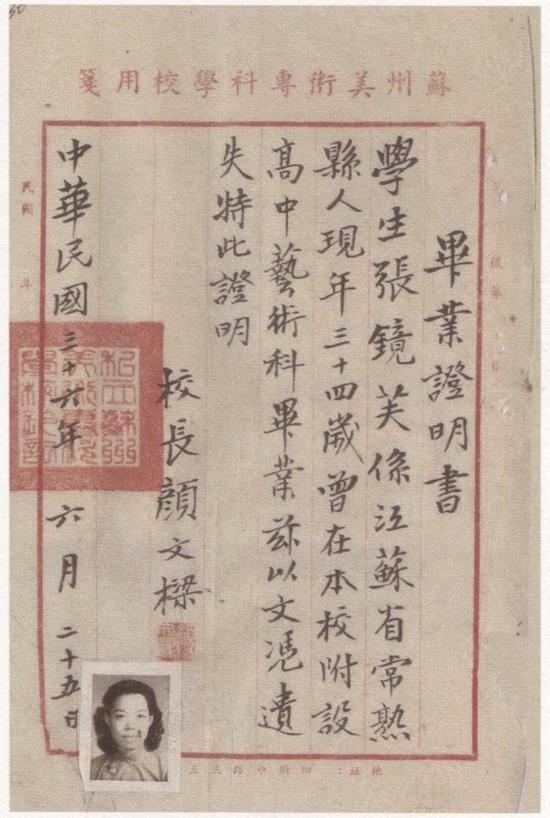 蘇州美術專科學校用箋
畢業證明書
學生張鏡芙係江蘇省常熟
縣人現年三十四歲曾在本校附設
高中藝術科畢業茲以文憑遺
失特此證明
校長顏文樑
中華民國三十六年六月二十五日
民國 年